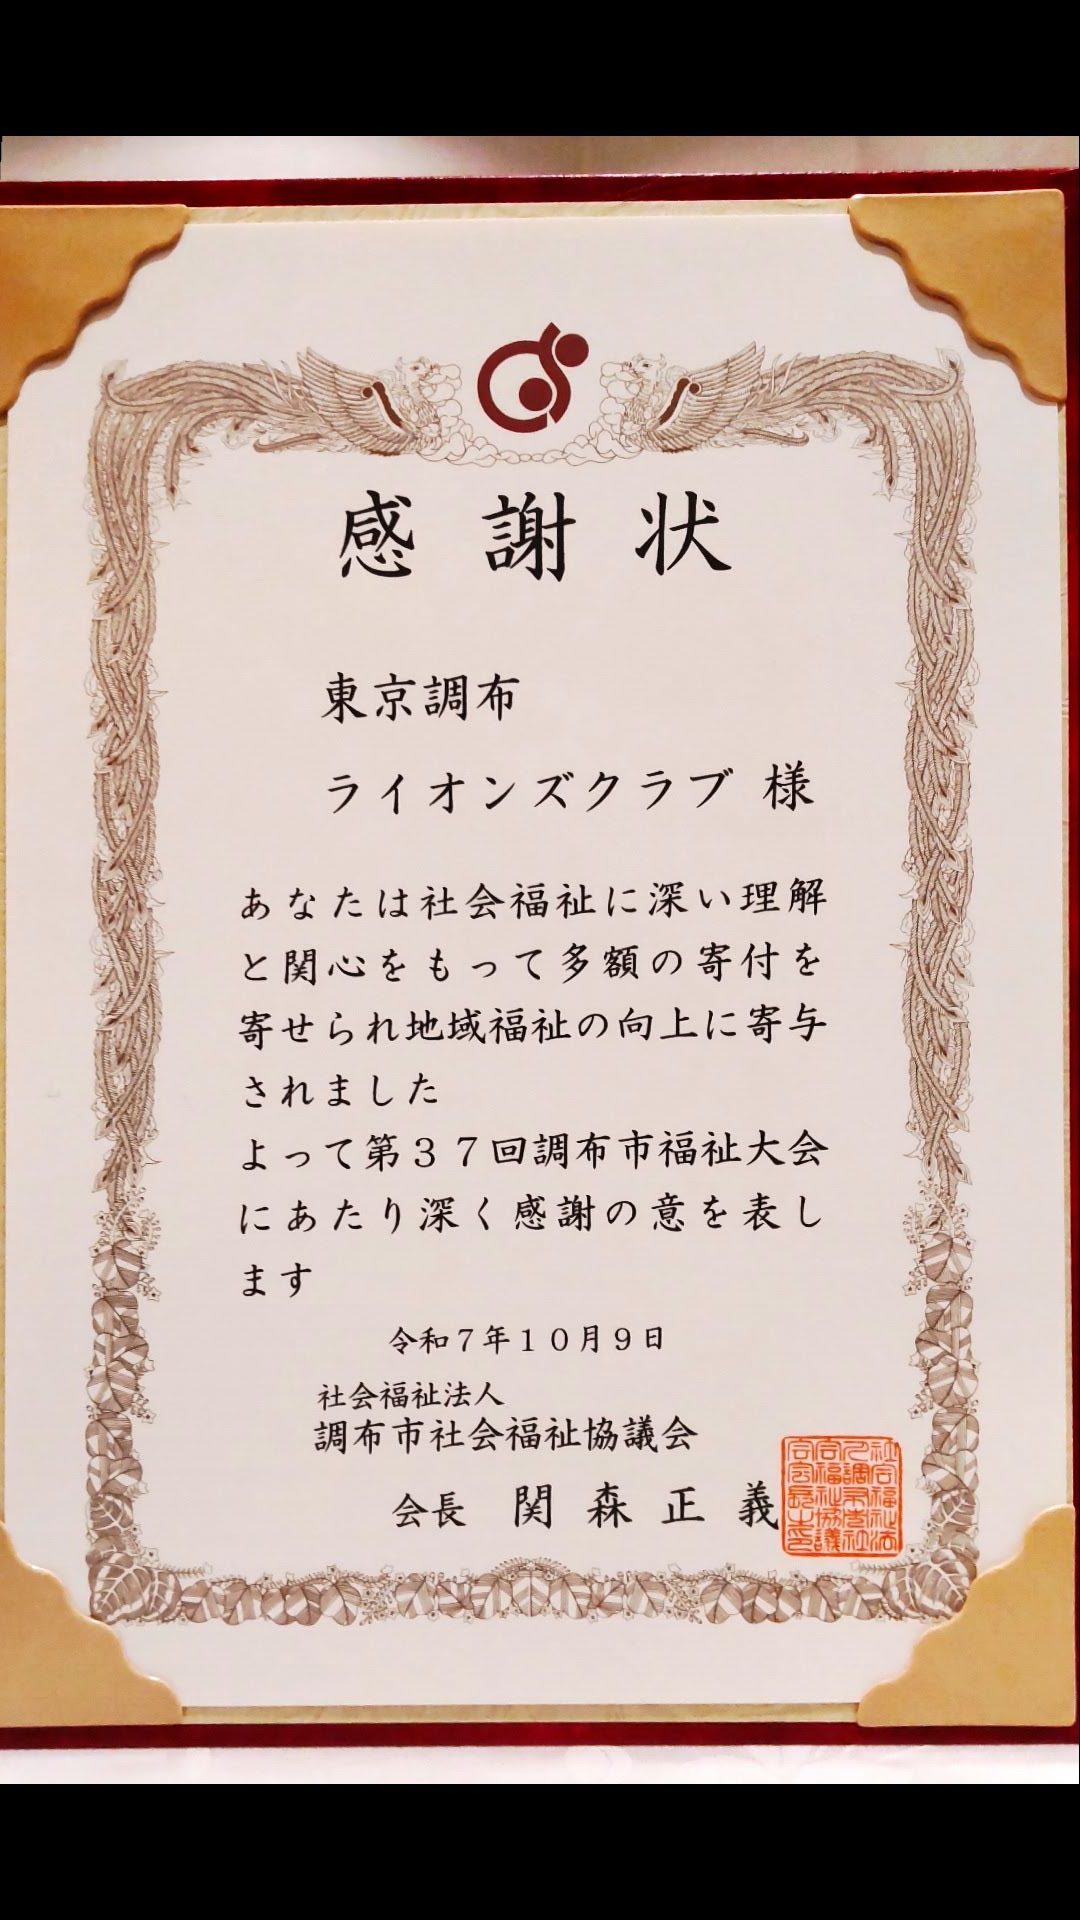 感謝状
東京調布
ライオンズクラブ 様
あなたは社会福祉に深い理解
と関心をもって多額の寄付を
寄せられ地域福祉の向上に寄与
されました
よって第37回調布市福祉大会
にあたり深く感謝の意を表し
ます
令和7年10月9日
社会福祉法人
調布市社会福祉協議会
会長 関森正義